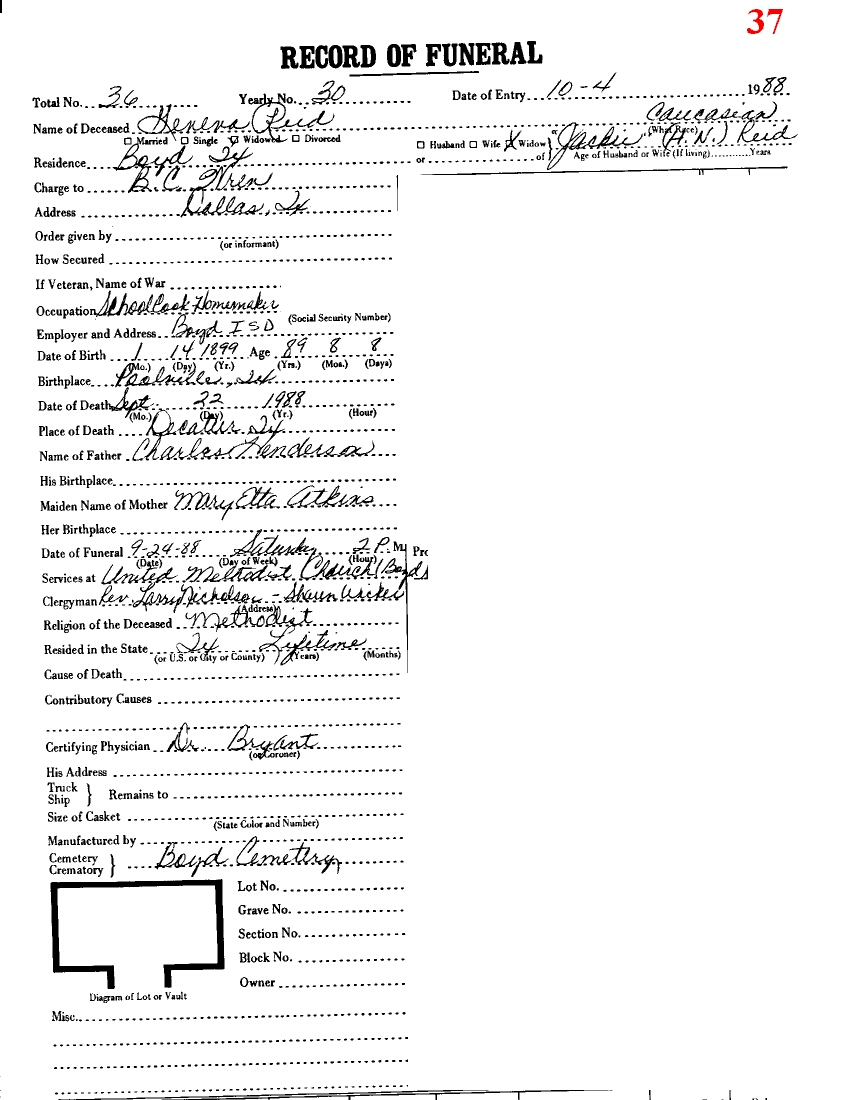 37
RECORD OF FUNERAL
Total No. 36 Yearly No. 30 Date of Entry 10-4 1988
Name of Deceased Geneva Reid Caucasian
(What Race)
☐ Married ☐ Single ☑ Widowed ☐ Divorced ☐ Husband ☐ Wife X Widow of Jackie (A.N.) Reid
Residence Boyd Tx or of Age of Husband or Wife (If living) Years
Charge to B.C. Wren
Address Dallas, Tx
Order given by
(or informant)
How Secured
If Veteran, Name of War
Occupation School Cook-Homemaker
(Social Security Number)
Employer and Address Boyd ISD
Date of Birth 1 14 1899 Age 89 8 8
(Mo.) (Day) (Yr.) (Yrs.) (Mos.) (Days)
Birthplace Poolville, Tx
Date of Death Sept. 22 1988
(Mo.) (Day) (Yr.) (Hour)
Place of Death Decatur Tx
Name of Father Charles Henderson
His Birthplace
Maiden Name of Mother Mary Etta Atkins
Her Birthplace
Date of Funeral 9-24-88 Saturday 2 P.M Pro
(Date) (Day of Week) (Hour)
Services at United Methodist Church (Boyd)
Clergyman Rev. Larry Nicholson - Shaun
(Address)
Religion of the Deceased Methodist
Resided in the State Tx Lifetime
(or U.S. or City or County) (Years) (Months)
Cause of Death
Contributory Causes
Certifying Physician Dr. Bryant
(or Coroner)
His Address
Truck
Ship } Remains to
Size of Casket
(State Color and Number)
Manufactured by
Cemetery
Crematory } Boyd Cemetery
Lot No.
Grave No.
Section No.
Block No.
Owner
Diagram of Lot or Vault
Misc.